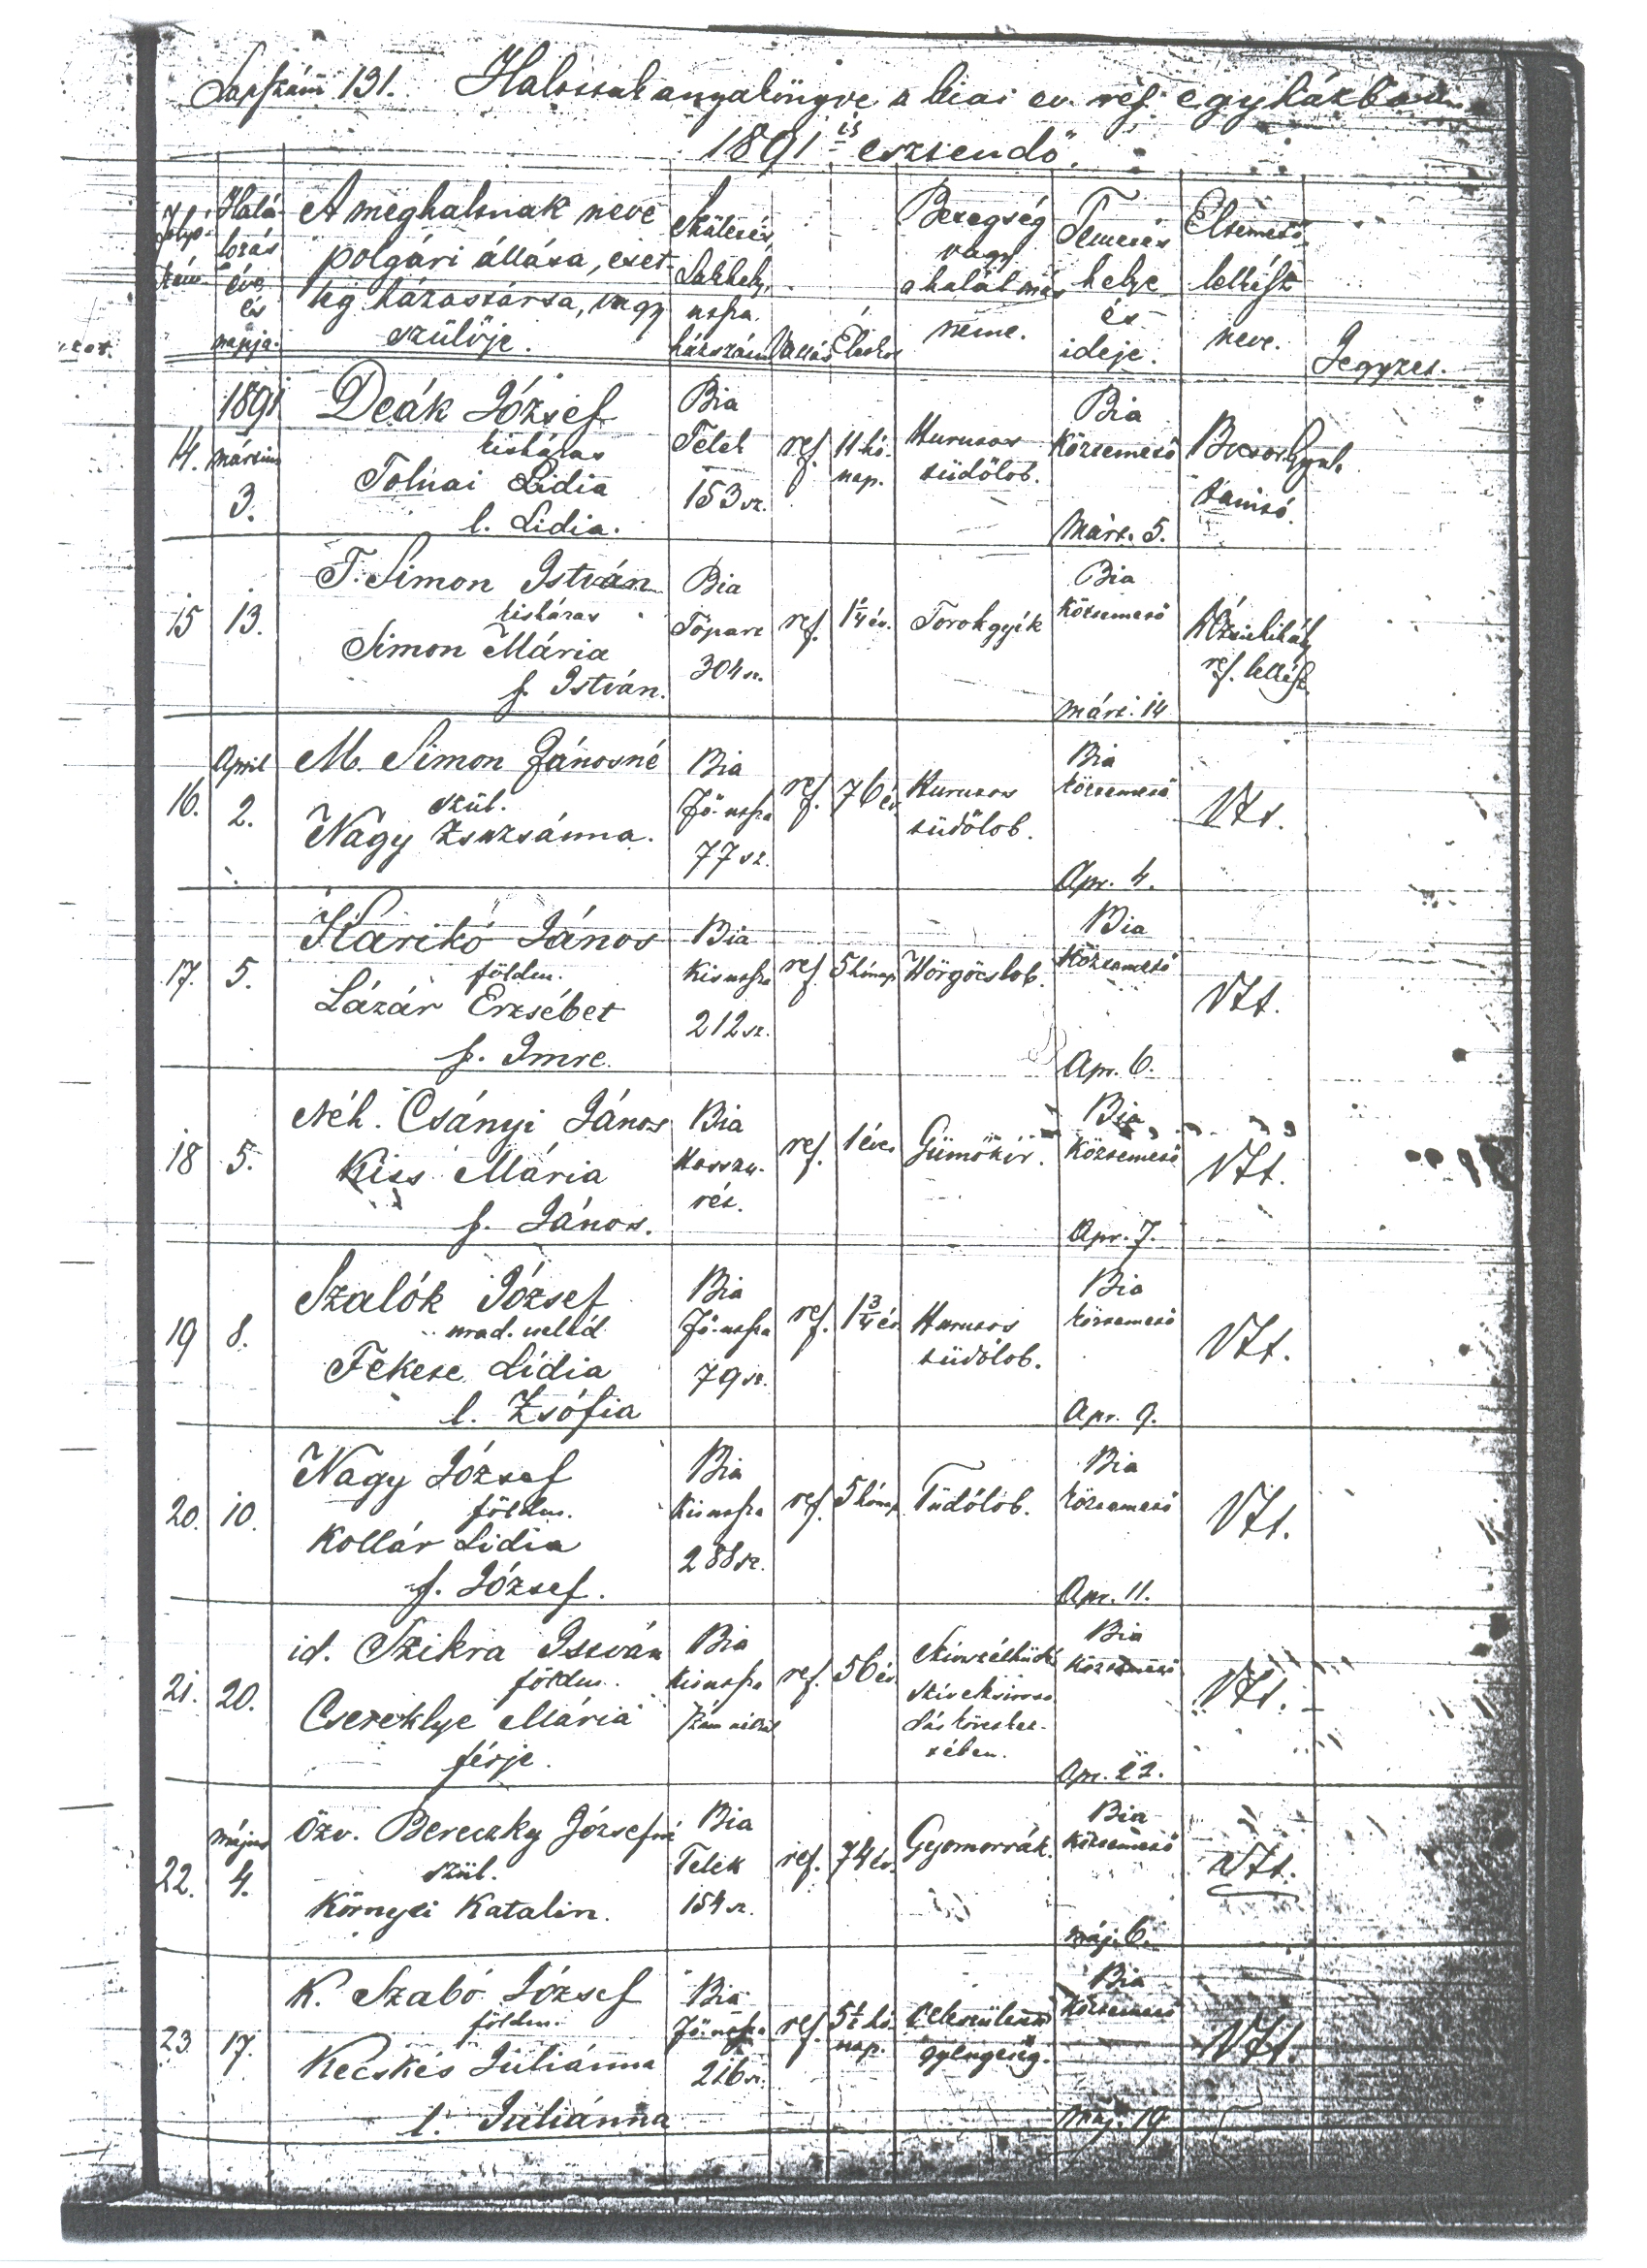 Lapszám 131. Halottak anyakönyve a biai ev. ref. egyházban
1891 ik esztendő.
Halálozás éve és napja.
A meghaltnak neve polgári állása, eset-
leg házastársa, vagy
szülője.
Születés
Lakhely,
utsza.
házszám
Vallás
Életkor
Betegség
vagy
a halál más
neme.
Temetés
helye
és
ideje.
Eltemető
lelkész
neve.
Jegyzet.
14. 1891 március 3.
Deák József
kisházas
Tolnai Lidia
l. Lidia.
Bia
Telek
153 sz.
ref. 11 hónap.
Hurutos
tüdőlob.
Bia
Köztemető
Márt. 5.
tanító.
15 13.
T. Simon István
kisházas
Simon Mária
f. István.
Bia
Tópart
304 sz.
ref. 1 1/4 év.
Torokgyík
Bia
Köztemető
márt. 14
ref. lelkész
16. April 2.
M. Simon Jánosné
szül.
Nagy Zsuzsánna.
Bia
Fő-utsza
77 sz.
ref. 76 év
Hurutos
tüdőlob.
Bia
köztemető
Apr. 4.
17. 5.
Harikó János
földm.
Lázár Erzsébet
f. Imre.
Bia
Kisutsza
212 sz.
ref. 5 hónap
Hörgőcslob.
Bia
Köztemető
Apr. 6.
18 5.
Néh. Csányi János
Kiss Mária
f. János.
Bia
Hosszu-
rét.
ref. 1 éves
Gümőkór.
Bia
Köztemető
Apr. 7.
19 8.
Szalók József
urad. cseléd
Fekete Lídia
l. Zsófia
Bia
Fő-utsza
79 sz.
ref. 1 3/4 év
Hurutos
tüdőlob.
Bia
köztemető
Apr. 9.
20. 10.
Nagy József
földm.
Kollár Lidia
f. József.
Bia
Kisutsza
288 sz.
ref. 5 hónap
Tüdőlob.
Bia
köztemető
Apr. 11.
21. 20.
id. Szikra István
földm.
Csereklye Mária
férje.
Bia
Kisutsza
szám nélkül
ref. 56 év.
Szívszélhüdés
következ-
tében.
Bia
Köztemető
Apr. 22.
22. május 4.
Özv. Bereczky Józsefné
szül.
Környei Katalin.
Bia
Telek
154 sz.
ref. 74 év.
Gyomorrák.
Bia
Köztemető
máj. 6.
23 17.
K. Szabó József
földm.
Kecskés Juliánna
l. Juliánna
Bia
Fő-utsza
216 sz.
ref. 5 1/2 hónap.
Veleszületett
gyengeség.
Bia
Köztemető
Máj. 19